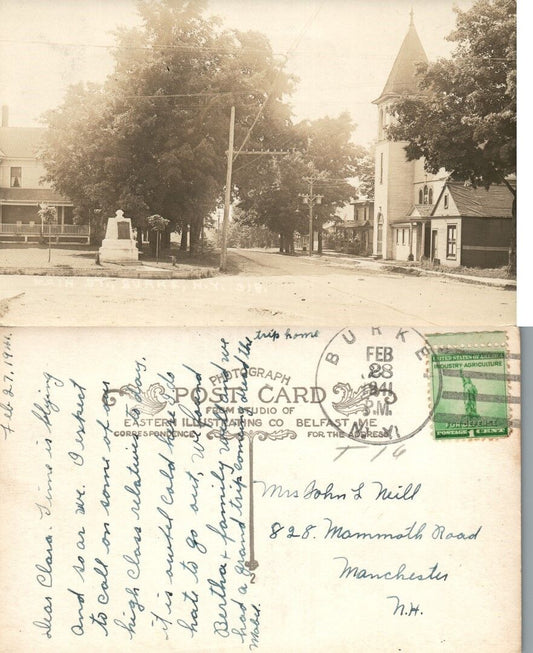 MAIN ST. BURKE, N.Y. 316.
trip home
Feb 27, 1941.
Dear Clara. Time is flying
and so are we. I expect
to call on some of our
high class relatives to-day.
it is awful cold here. I do
hate to go out, We heard
Bertha & family were so we
had a grand trip coming, dread the
Mabel.
PHOTOGRAPH
POST CARD
FROM STUDIO OF
EASTERN ILLUSTRATING CO BELFAST ME
CORRESPONDENCE
FOR THE ADDRESS
BURKE
FEB
28
1941
P.M.
N.Y.
UNITED STATES OF AMERICA
INDUSTRY AGRICULTURE
FOR DEFENSE
POSTAGE 1 CENT
Mrs John L Neill
828. Mammoth Road
Manchester
N.H.